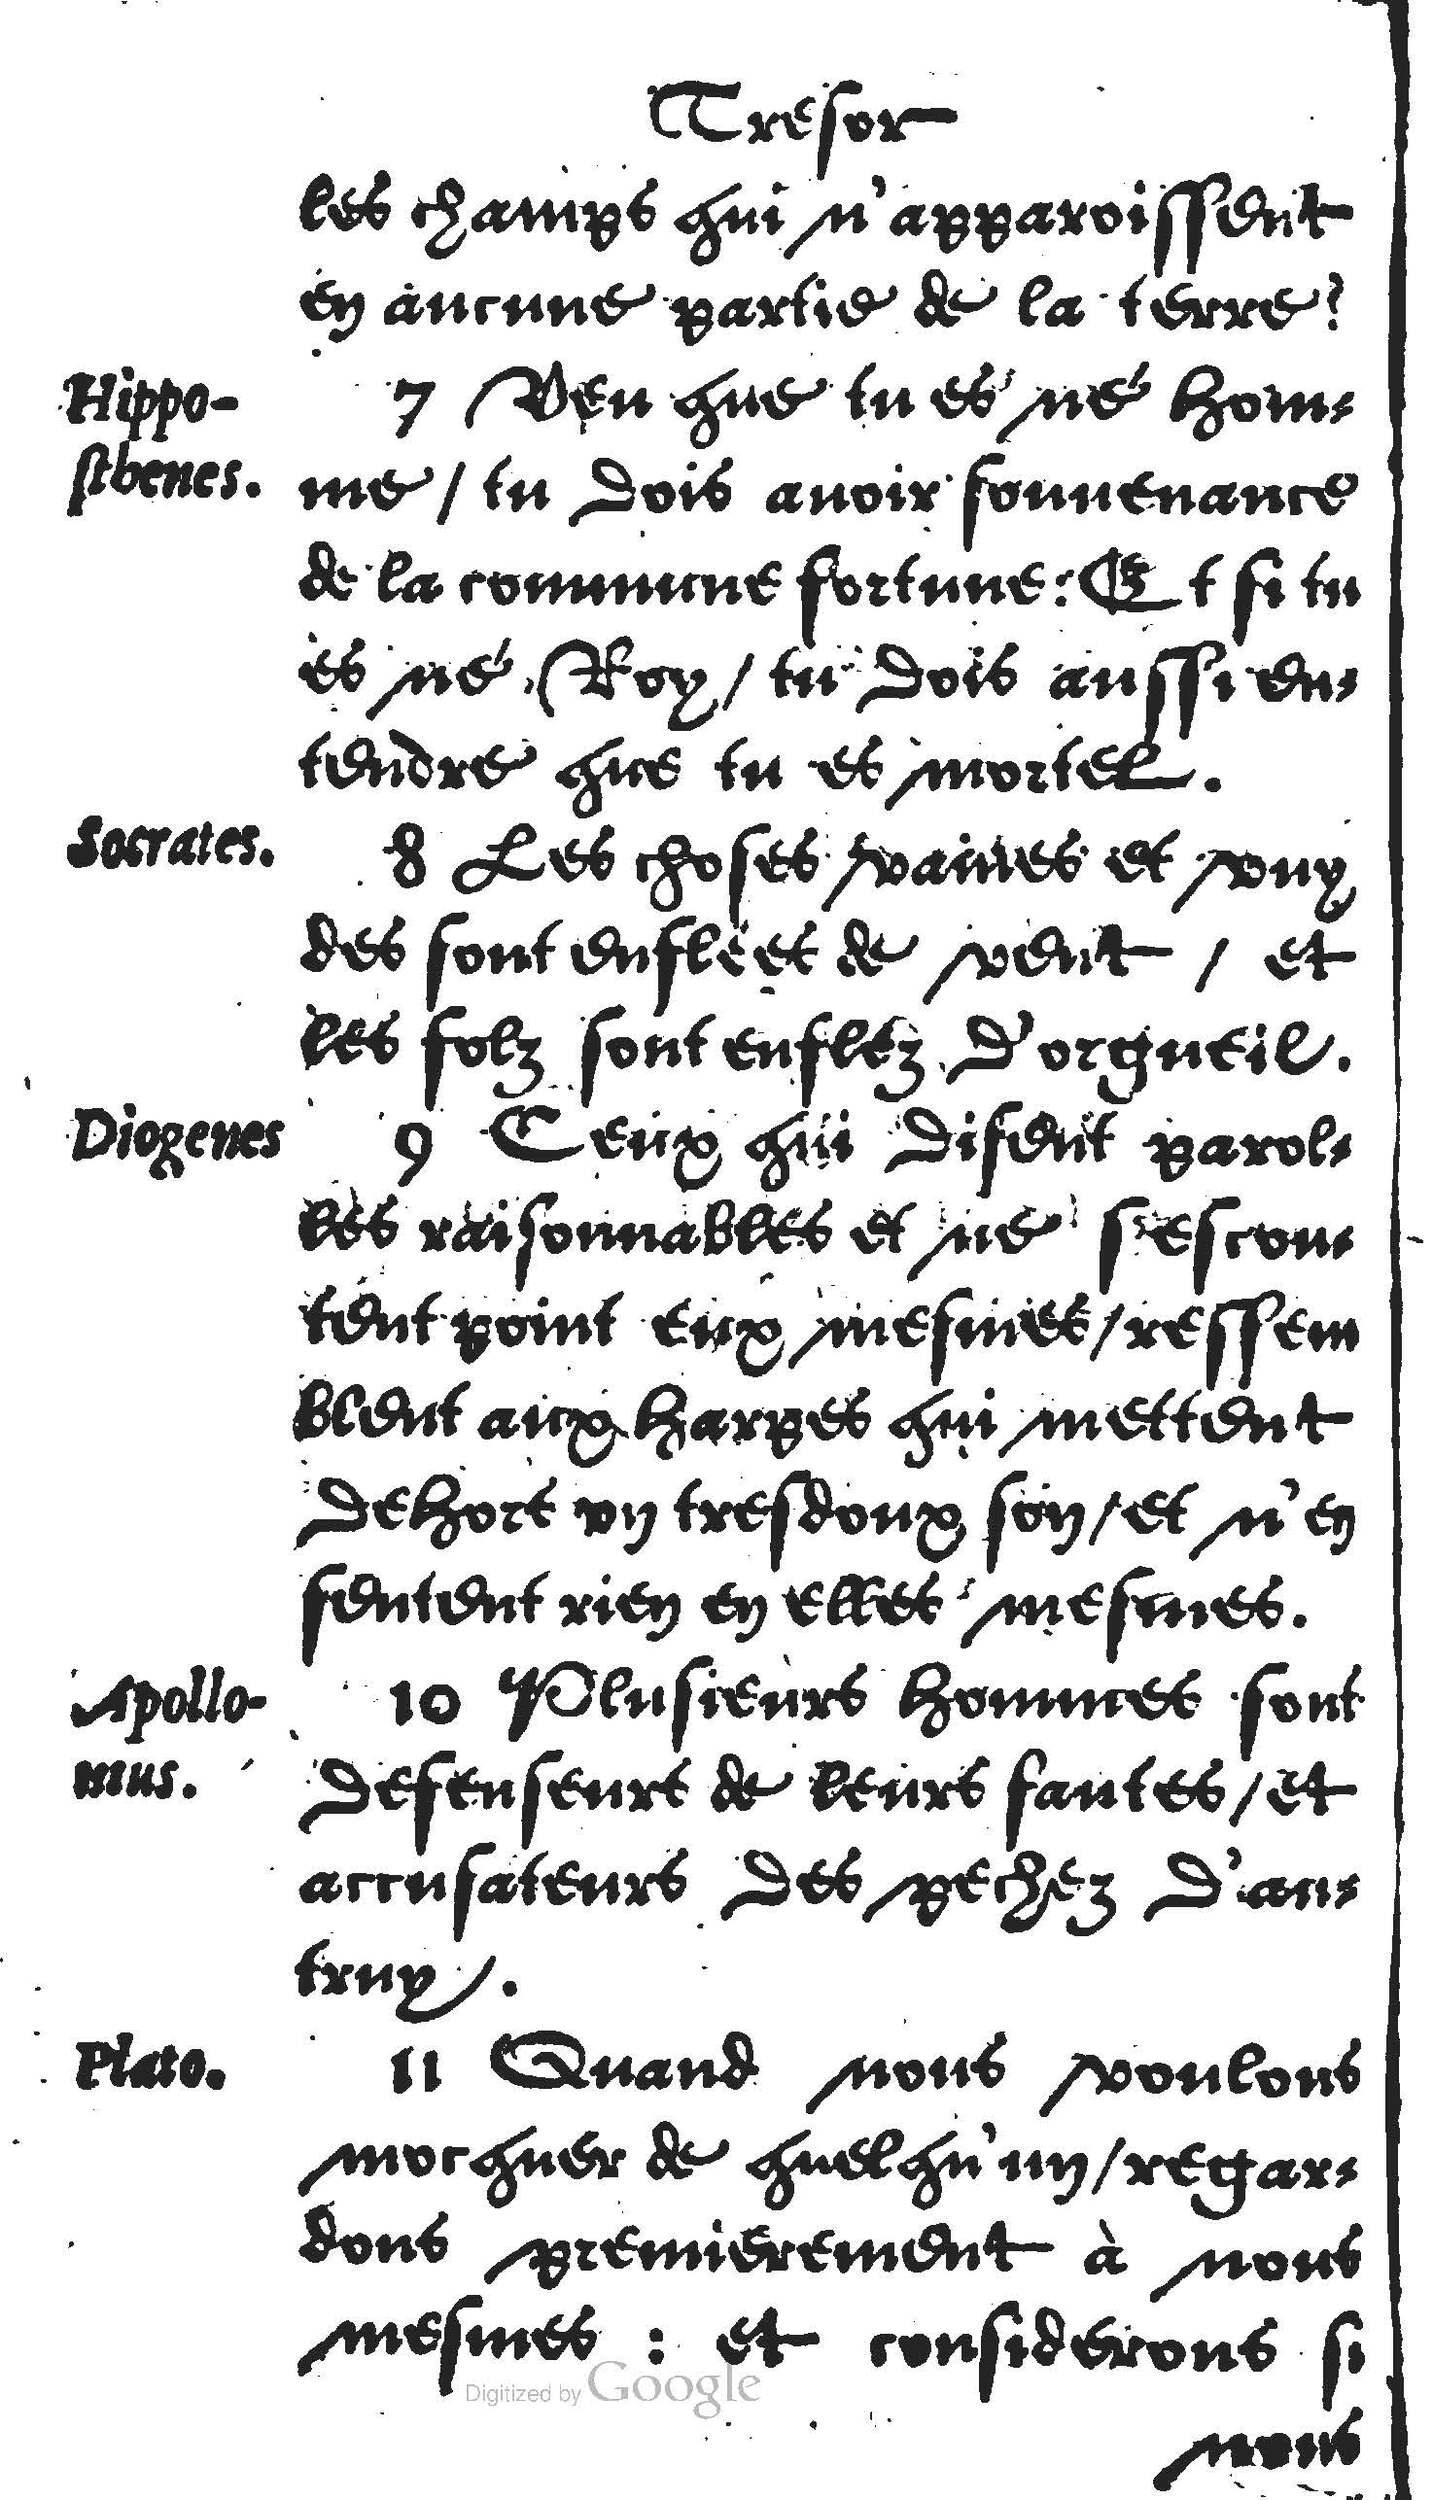 Tresor
les champs qui n'apparoissent
en aucune partie de la terre?
Hippo-
sthenes.
7 Veu que tu es né hom-
me / tu dois auoir souuenance
de la commune fortune: Et si tu
es né Roy / tu dois aussi en-
tendre que tu es mortel.
Socrates.
8 Les choses vaines et vuy
des sont enflées de vent / et
les folz sont enflez d'orgueil.
Diogenes
9 Ceux qui disent parol-
les raisonnables et ne s'escou-
tent point eux mesmes / ressem
blent aux harpes qui mettent
dehors vn tresdoux son / et n'en
sentent rien en elles mesmes.
Apollo-
mus.
10 Plusieurs hommes sont
defenseurs de leurs fautes / et
accusateurs des pechez d'au-
truy.
Plato.
11 Quand nous voulons
mocquer de quelqu'un / regar-
dons premierement à nous
mesmes : et considerons si
nous
Digitized by Google